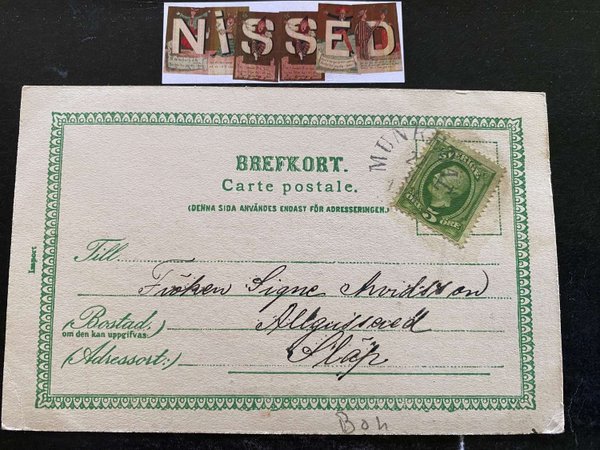 NISSED
BREFKORT.
Carte postale.
(DENNA SIDA ANVÄNDES ENDAST FÖR ADRESSERINGEN.)
SVERIGE
5 ÖRE
Import
Till
Fröken Signe Arvidsson
(Bostad,
om den kan uppgifvas:
(Adressort:)
Släp
Boh